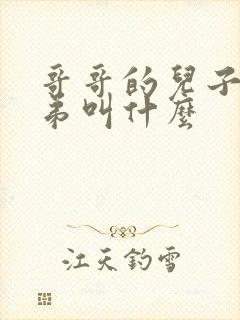 哥哥的兒子
弟叫什麼
江天釣雪